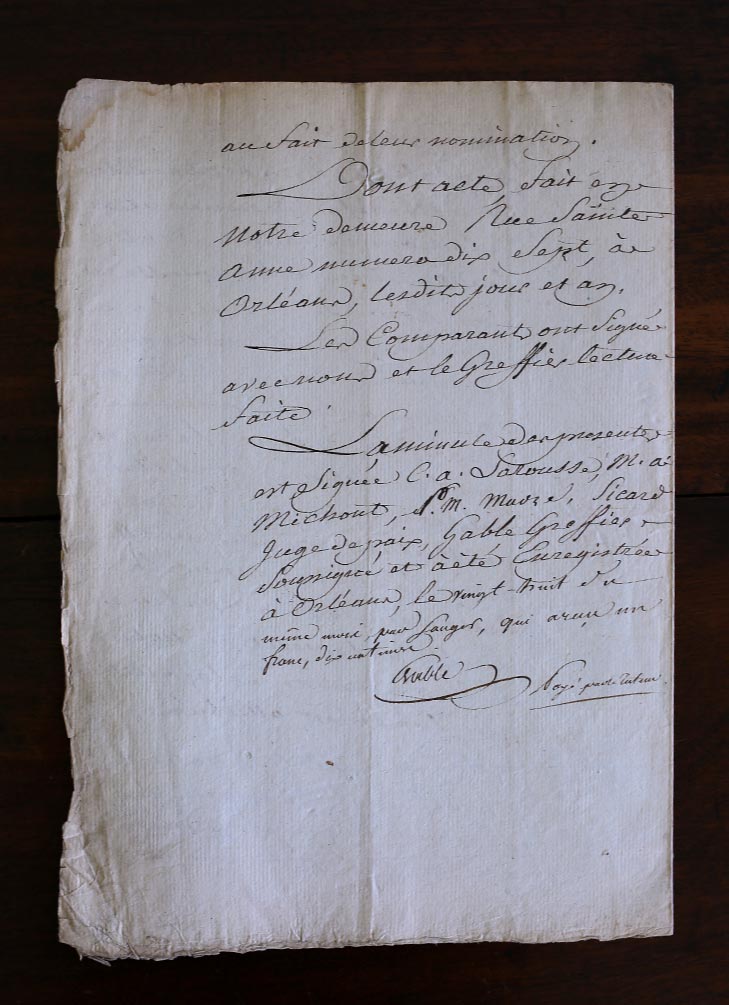 au fait de leur nomination.
Dont acte, fait en
notre demeure Rue Sainte
Anne numero dix Sept, à
Orléans, lesdits jour et an.
Les Comparants ont Signé
avec nous et le Greffier lecture
faite.
La minute des presentes
est Signée C. a.
Michout, M. Sicard
Juge de paix, Gable Greffier
Soussigné et a été Enregistrée
à Orléans, le vingt-huit du
même mois, par qui a reçu un
franc, dix centimes.
Gable
Payé par le tuteur